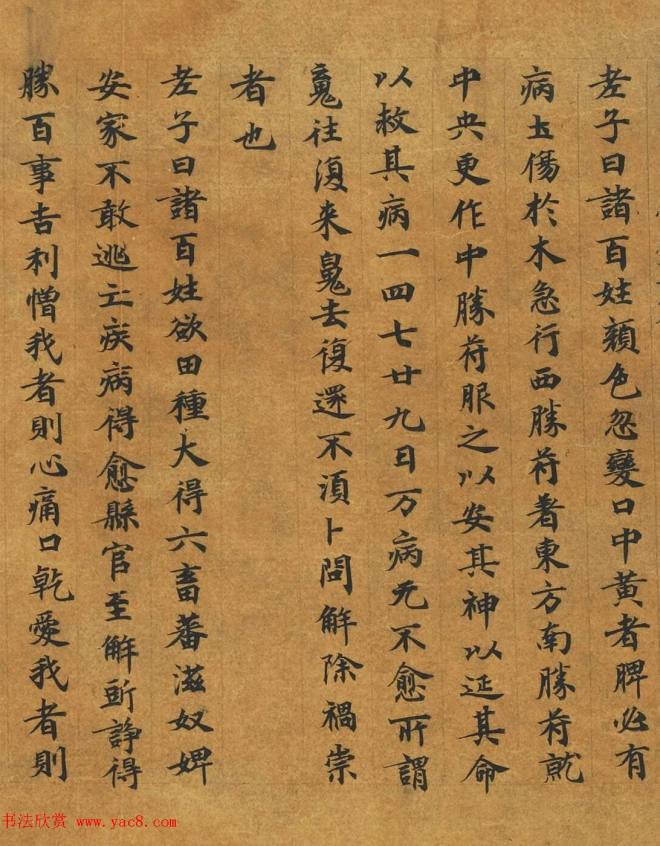 老子曰諸百姓顏色忽變口中黃者脾必有
病土傷於木急行西勝符著東方南勝符就
中央更作中勝符服之以安其神以延其命
以救其病一四七廿九日万病无不愈所謂
魂往復来鬼去復還不湏卜問解除禍祟
者也
老子曰諸百姓欲田種大得六畜蕃滋奴婢
安家不敢逃亡疾病得愈縣官至解鬭諍得
勝百事吉利憎我者則心痛口乾愛我者則
书法欣赏 www.yac8.com